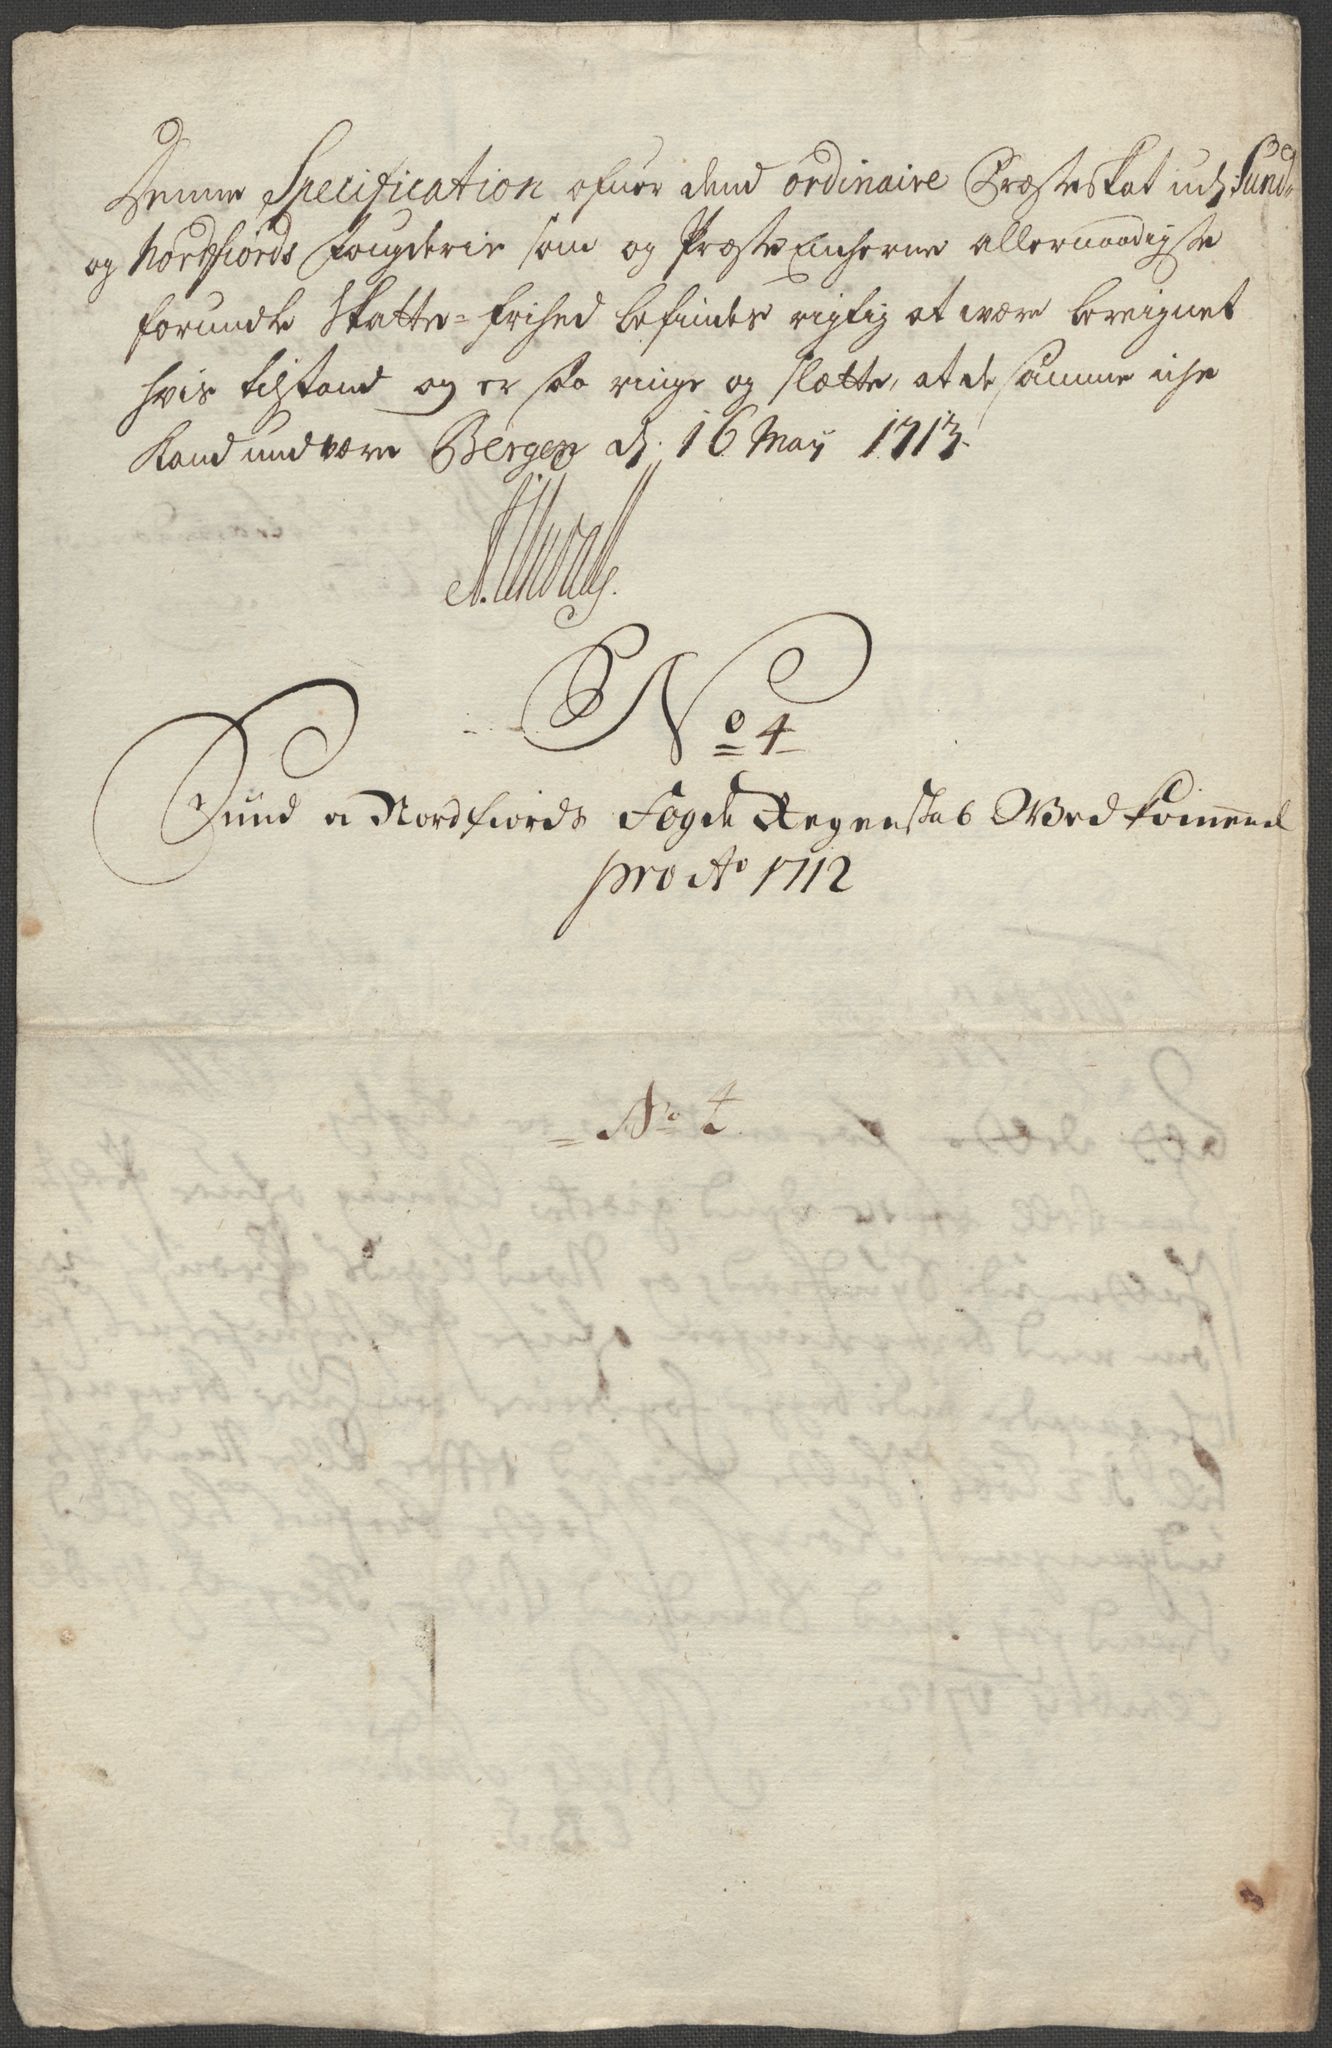 Denne Specification ofuer dend ordinaire Præsteskat udj Sund-
og Nordfiords Fougderie som og Præste Encherne allernaadigste
forundte Skatte-frihed befindes rigtig at være bereignet
hvis tilstand og er saa ringe og slætte, at de samme iche
kand undvære Bergen d. 16 Maij 1713.
No 4
Sund oc Nordfiords Fogde Regenskab Wedkomend
pro Ao 1712
No 4